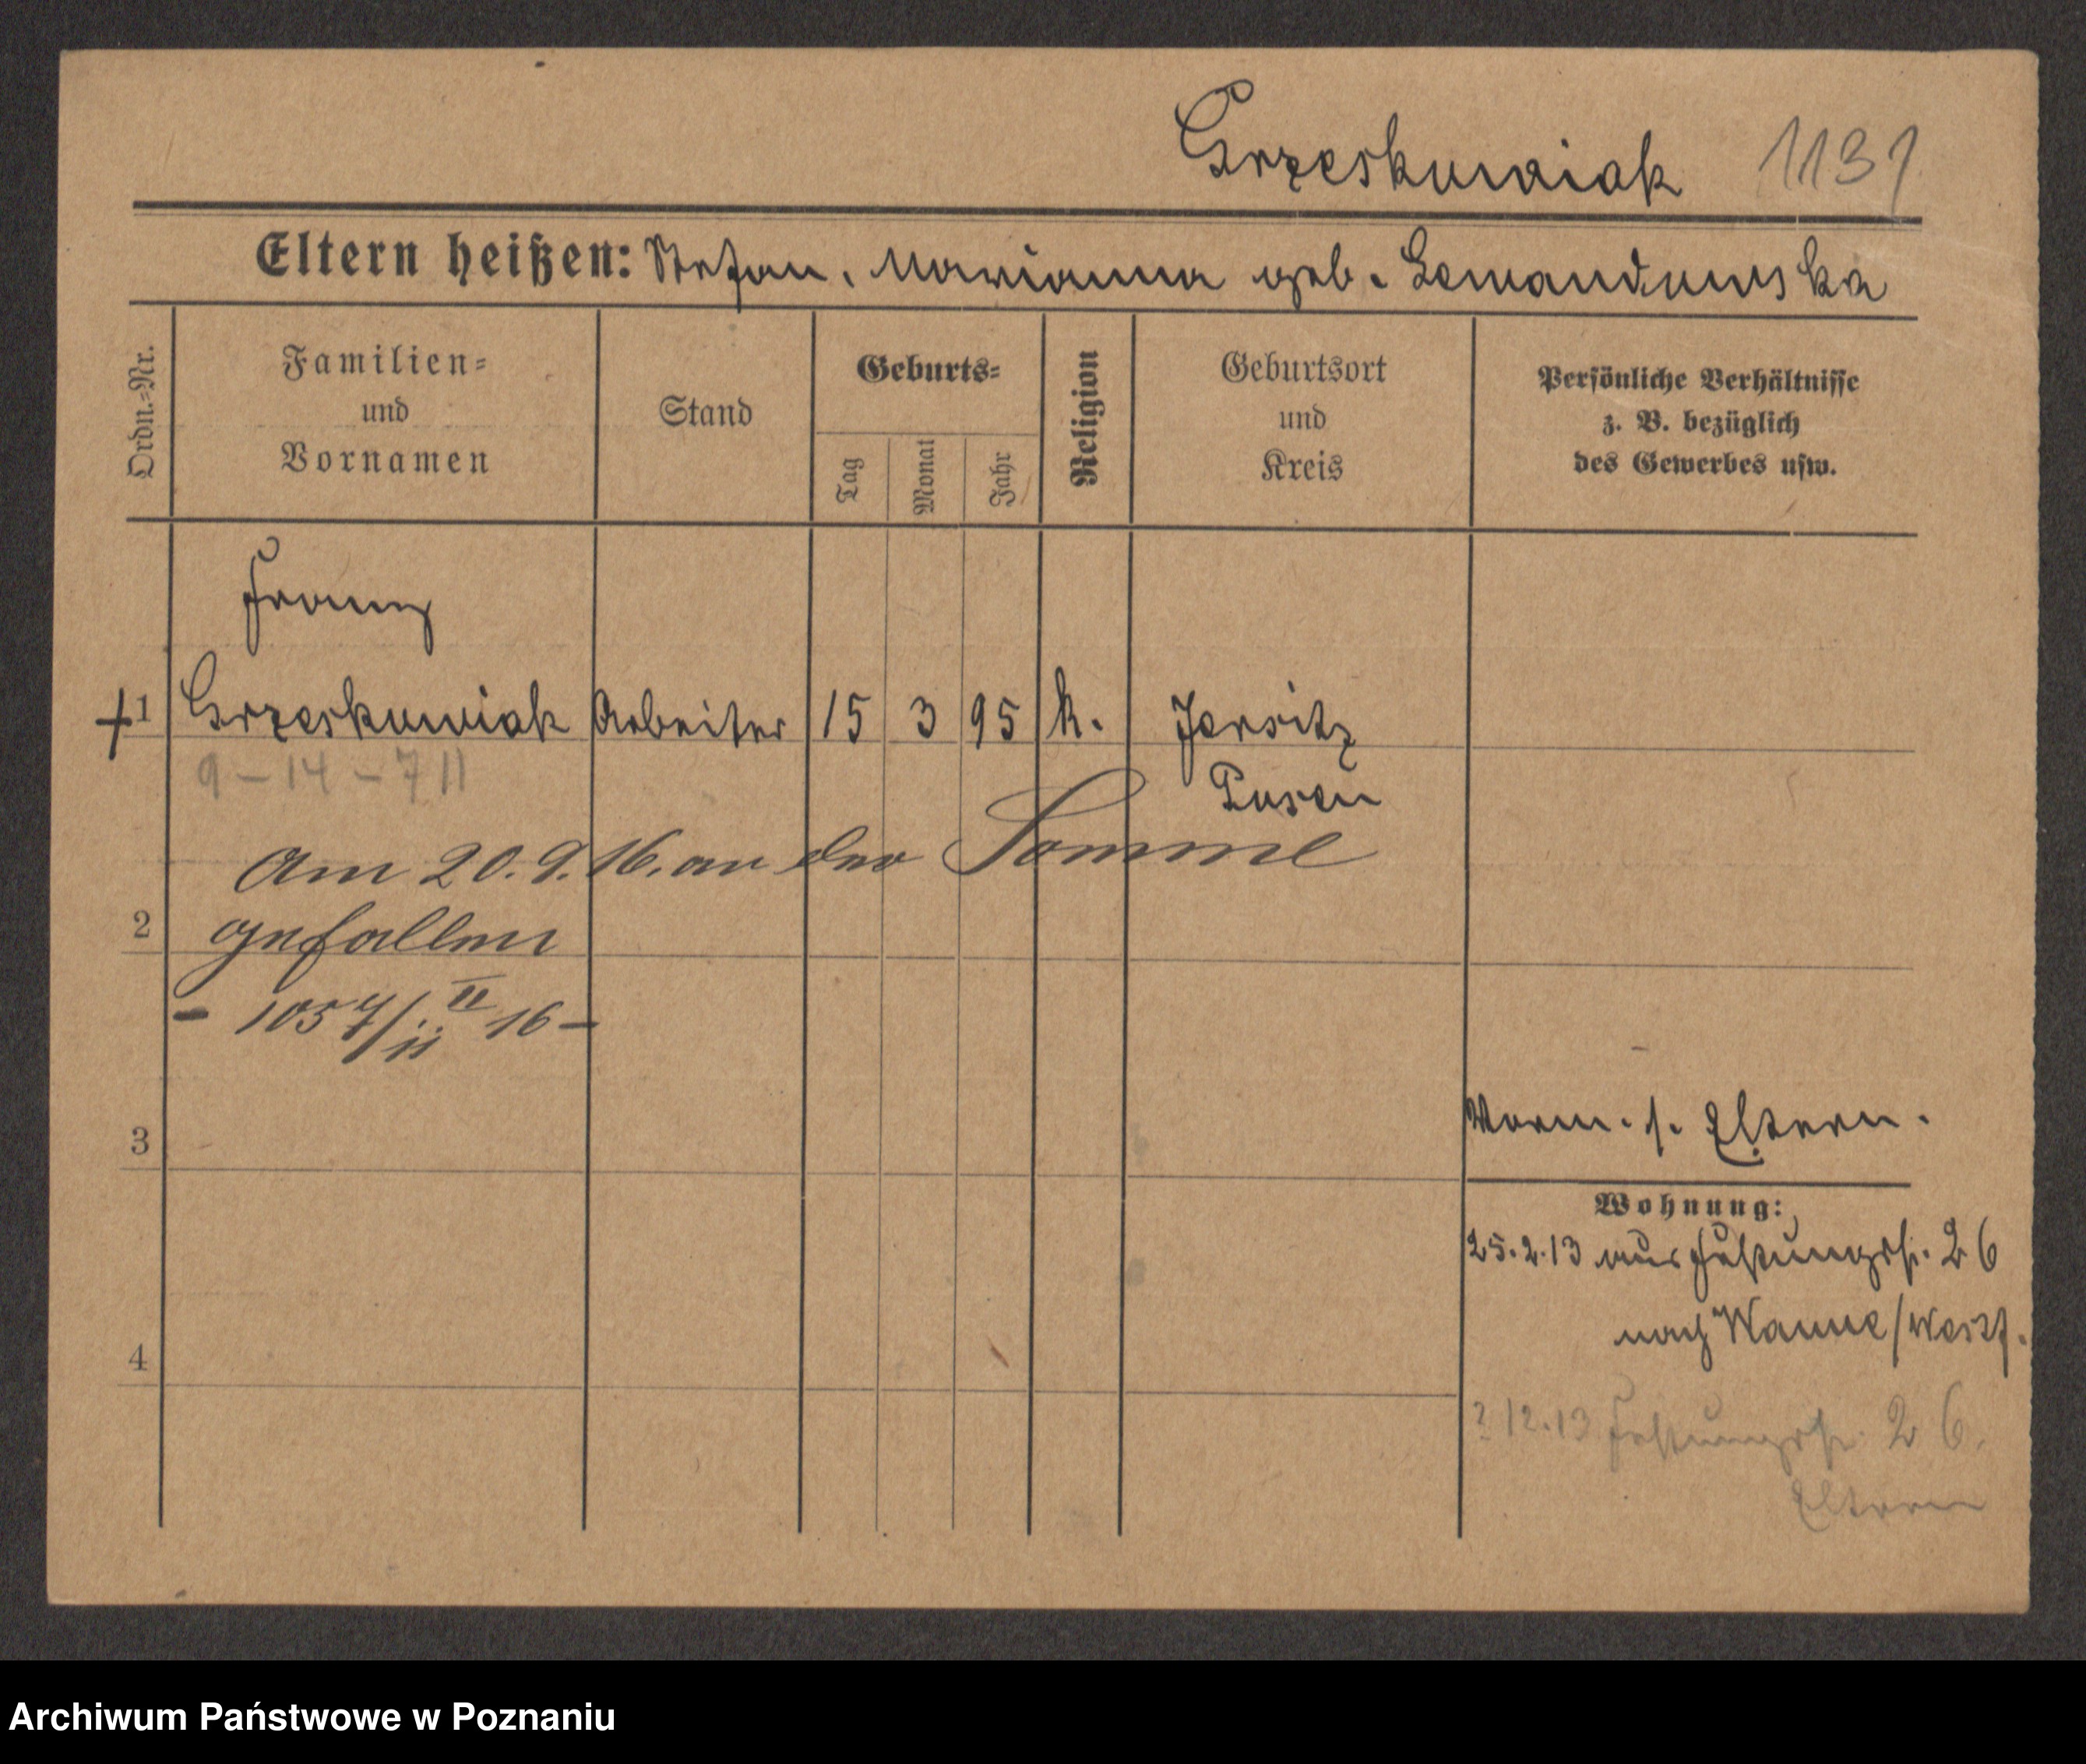 Grzeskowiak 1131
Eltern heißen: Stefan, Marianna geb. Lewandowska
Ordn.-Nr.
Familien-
und
Vornamen
Stand
Geburts-
Tag
Monat
Jahr
Religion
Geburtsort
und
Kreis
Persönliche Verhältnisse
z. B. bezüglich
des Gewerbes usw.
Franz
+ 1 Grzeskowiak Arbeiter 15 3 95 k. Jersitz
9-14-711 Posen
Am 20.9.16. an der Somme
2 gefallen
- 1057/11 II 16 -
Vorm. s. Eltern.
3
Wohnung:
25.2.13 aus Festungsstr. 26
nach Wanne/Westf.
4
12.13 Festungsstr. 26.
Eltern
Archiwum Państwowe w Poznaniu